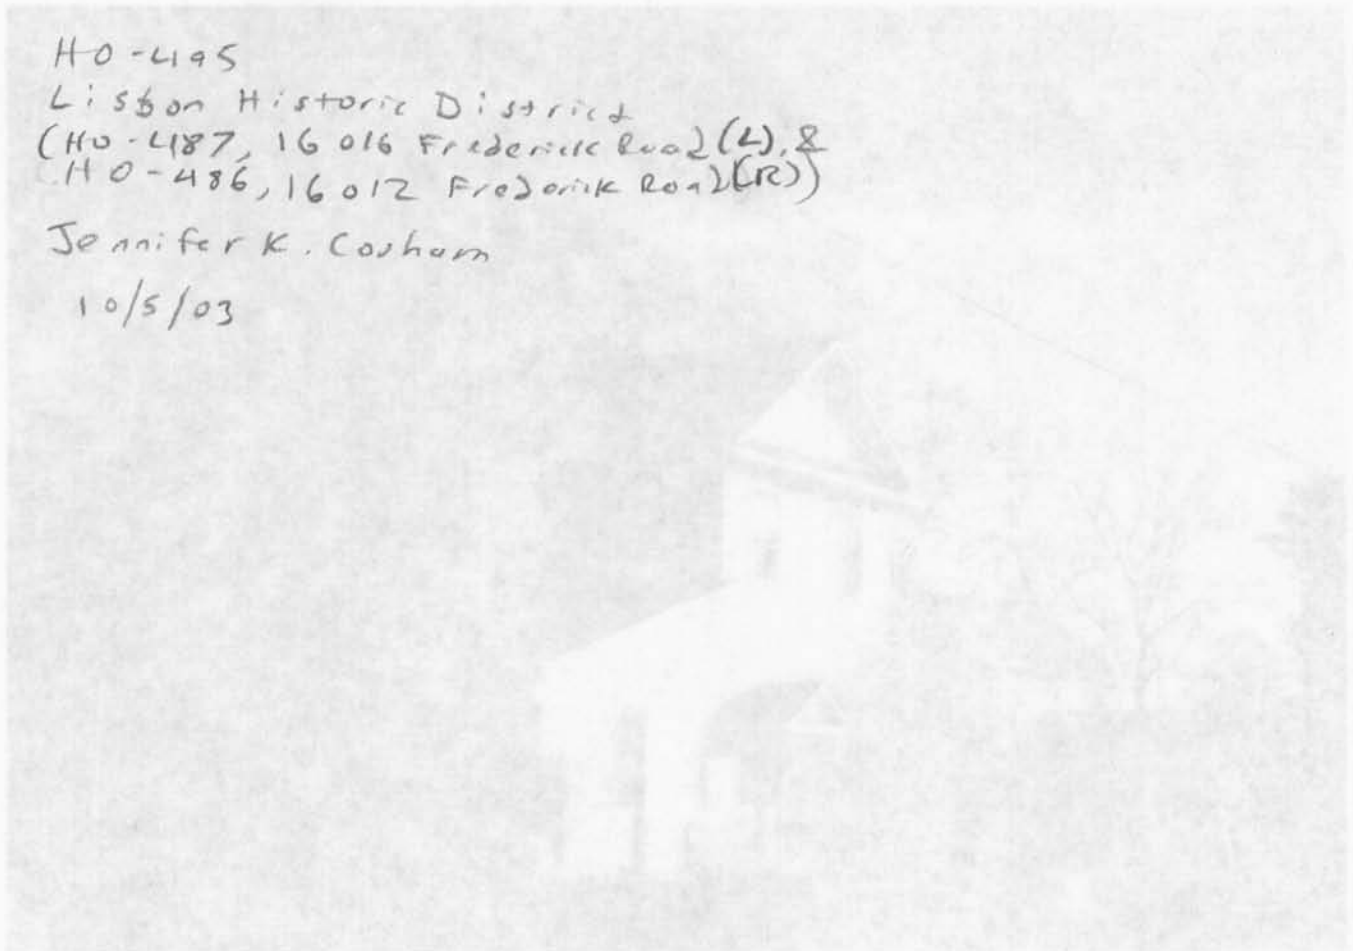 HO-495
Lisbon Historic District
(HO-487, 16016 Frederick Road (L), &
HO-486, 16012 Frederick Road (R))
Jennifer K. Cosham
10/5/03